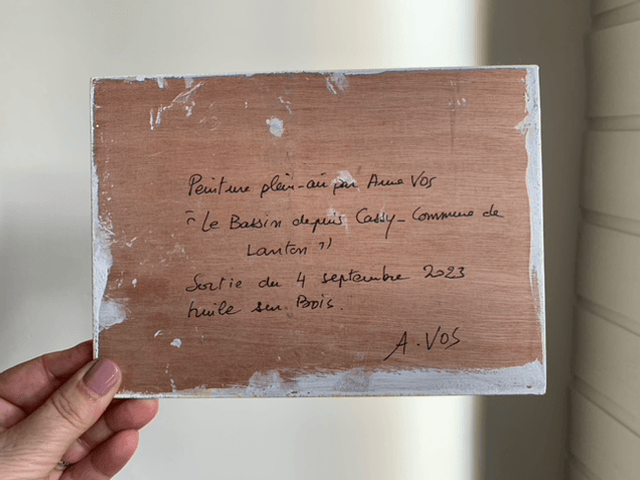 Peinture plein-air par Anne Vos
"Le Bassin depuis Cassy - Commune de
Lanton"
Sortie du 4 septembre 2023
huile sur Bois.
A. VOS